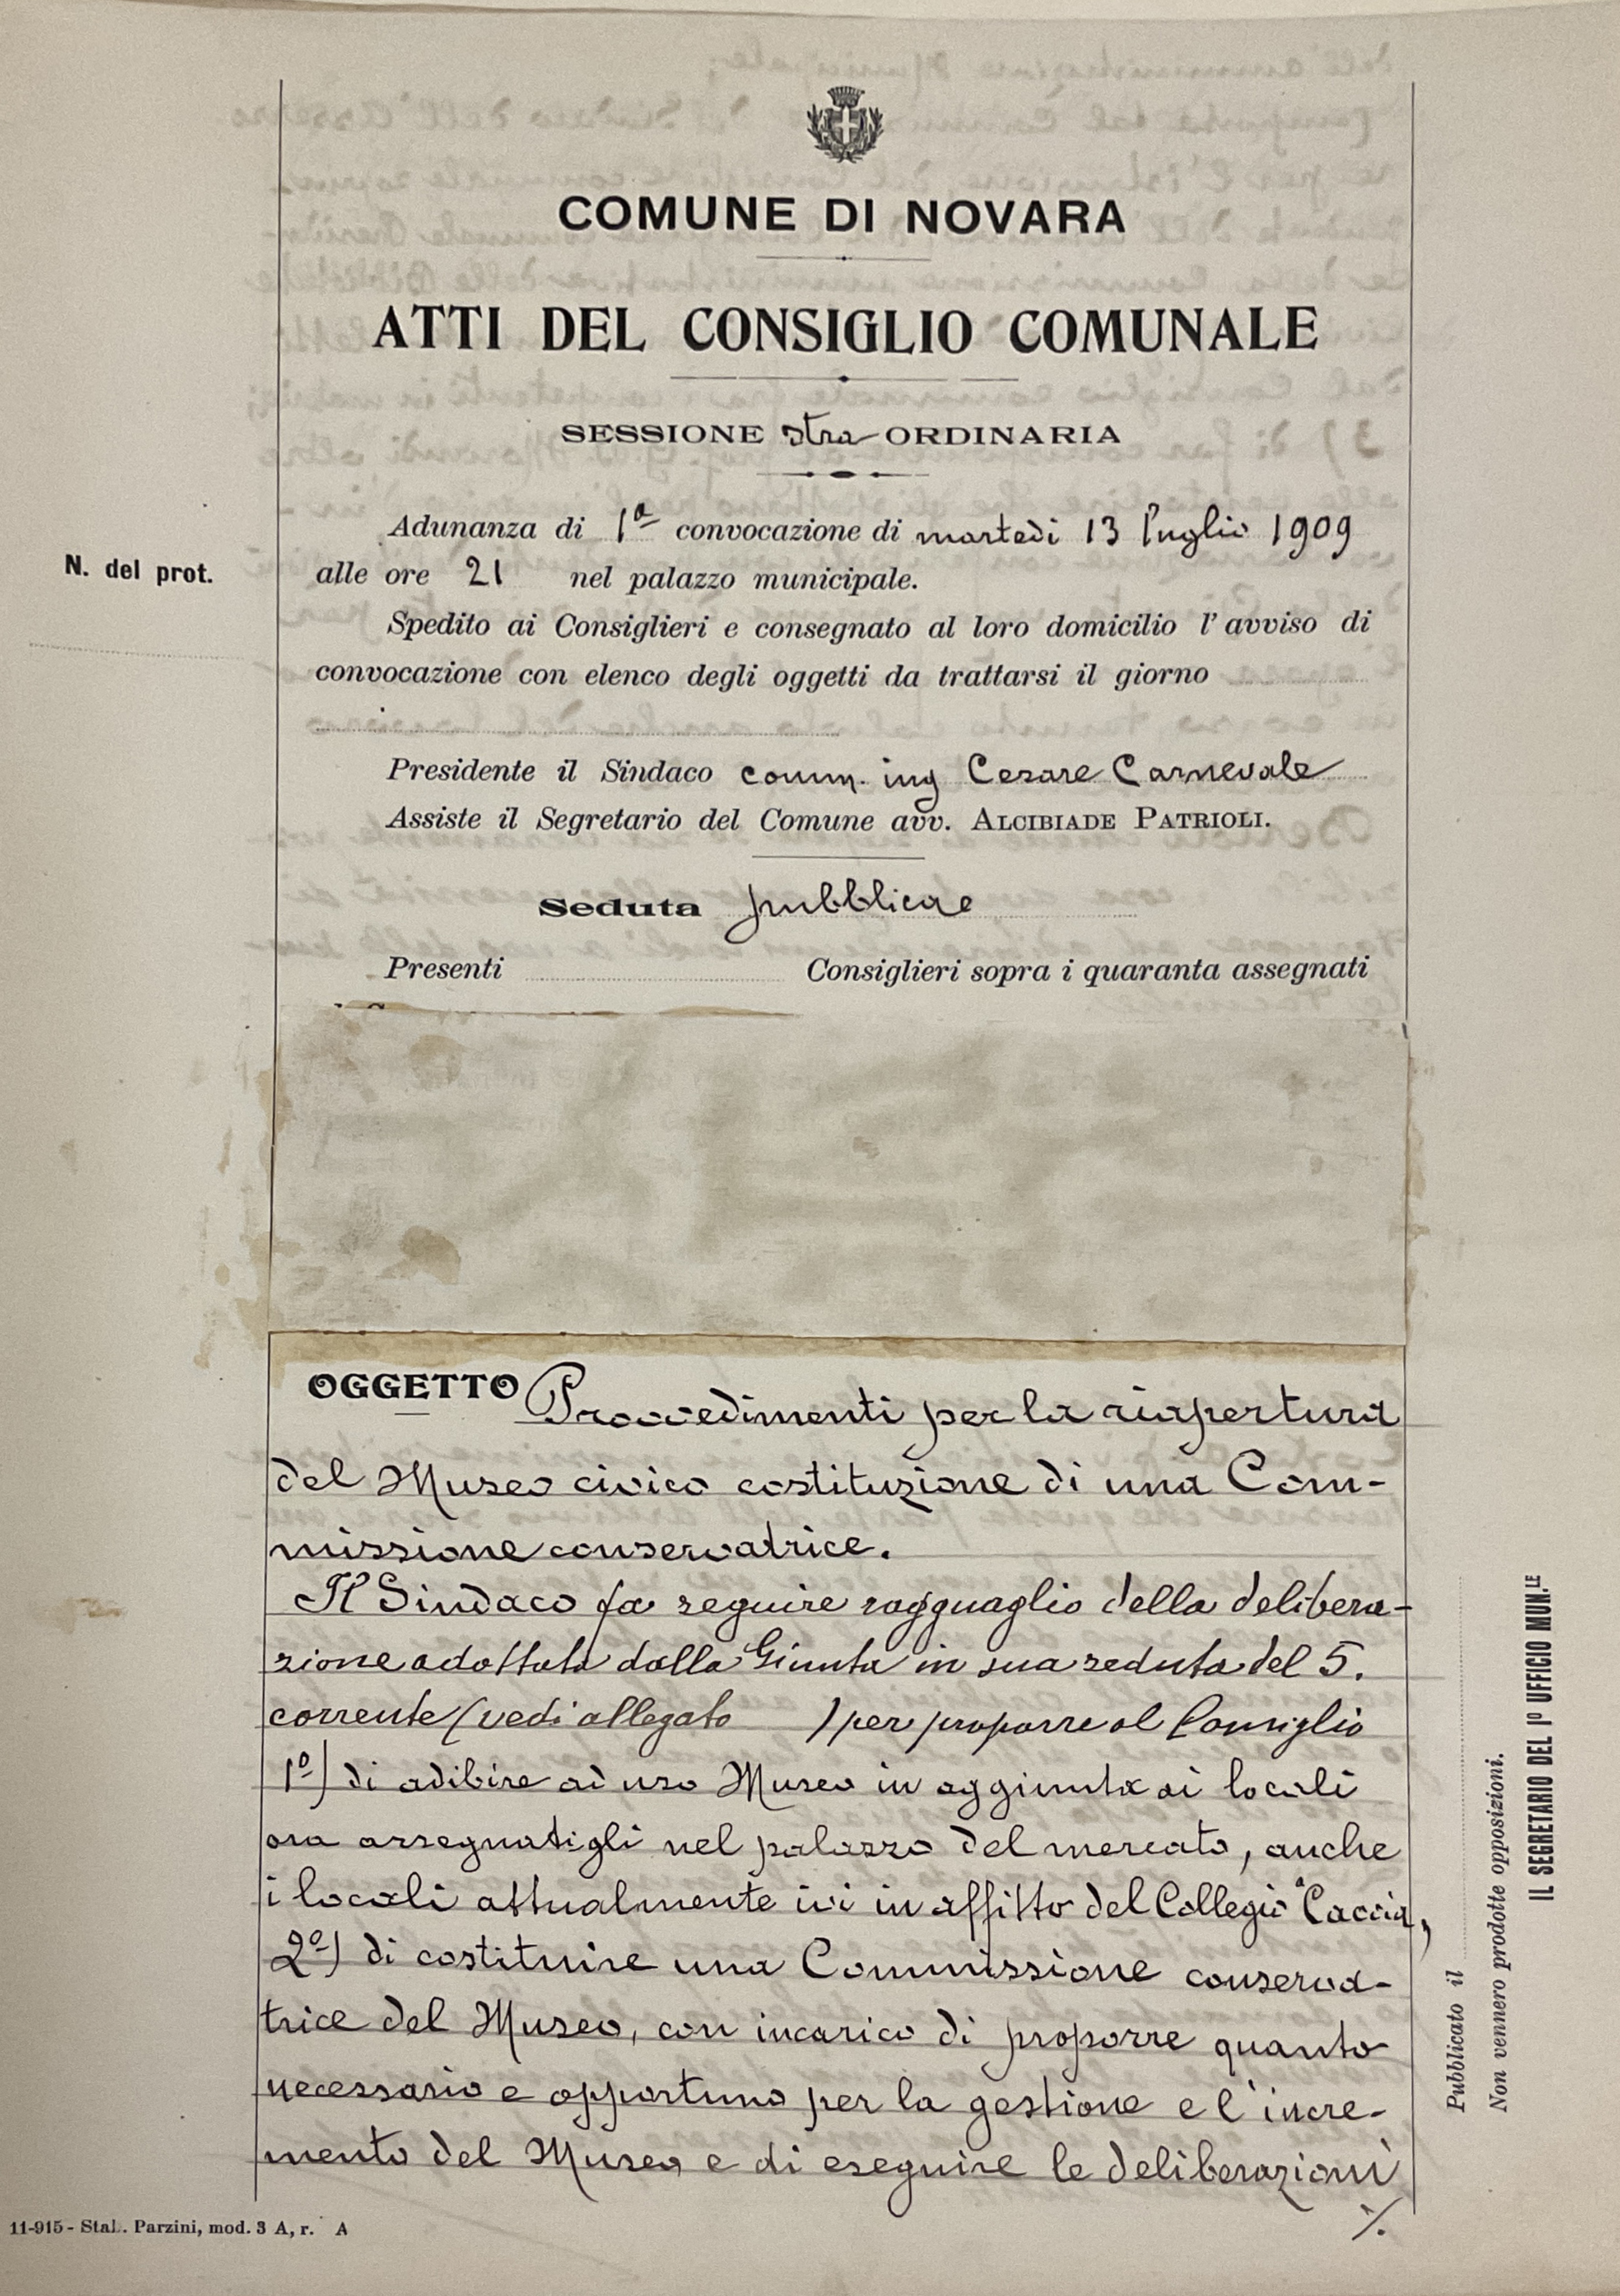 COMUNE DI NOVARA
ATTI DEL CONSIGLIO COMUNALE
SESSIONE stra ORDINARIA
Adunanza di 1ª convocazione di martedì 13 luglio 1909
N. del prot.
alle ore 21 nel palazzo municipale.
Spedito ai Consiglieri e consegnato al loro domicilio l'avviso di
convocazione con elenco degli oggetti da trattarsi il giorno
Presidente il Sindaco comm. ing Cesare Carnevale
Assiste il Segretario del Comune avv. ALCIBIADE PATRIOLI.
Seduta pubblica
Presenti Consiglieri sopra i quaranta assegnati
OGGETTO Provvedimenti per la riapertura
del Museo civico costituzione di una Com-
missione conservatrice.
Il Sindaco fa seguire ragguaglio della delibera-
zione adottata dalla Giunta in sua seduta del 5.
corrente (vedi allegato ) per proporre al Consiglio
1º) di adibire ad uso Museo in aggiunta ai locali
ora assegnatigli nel palazzo del mercato, anche
i locali attualmente ivi in affitto del Collegio Caccia,
2º) di costituire una Commissione conserva-
trice del Museo, con incarico di proporre quanto
necessario e opportuno per la gestione e l'incre-
mento del Museo e di eseguire le deliberazioni
./.
Pubblicato il
Non vennero prodotte opposizioni.
IL SEGRETARIO DEL Iº UFFICIO MUN.LE
11-915 - Stab. Parzini, mod. 3 A, r. A